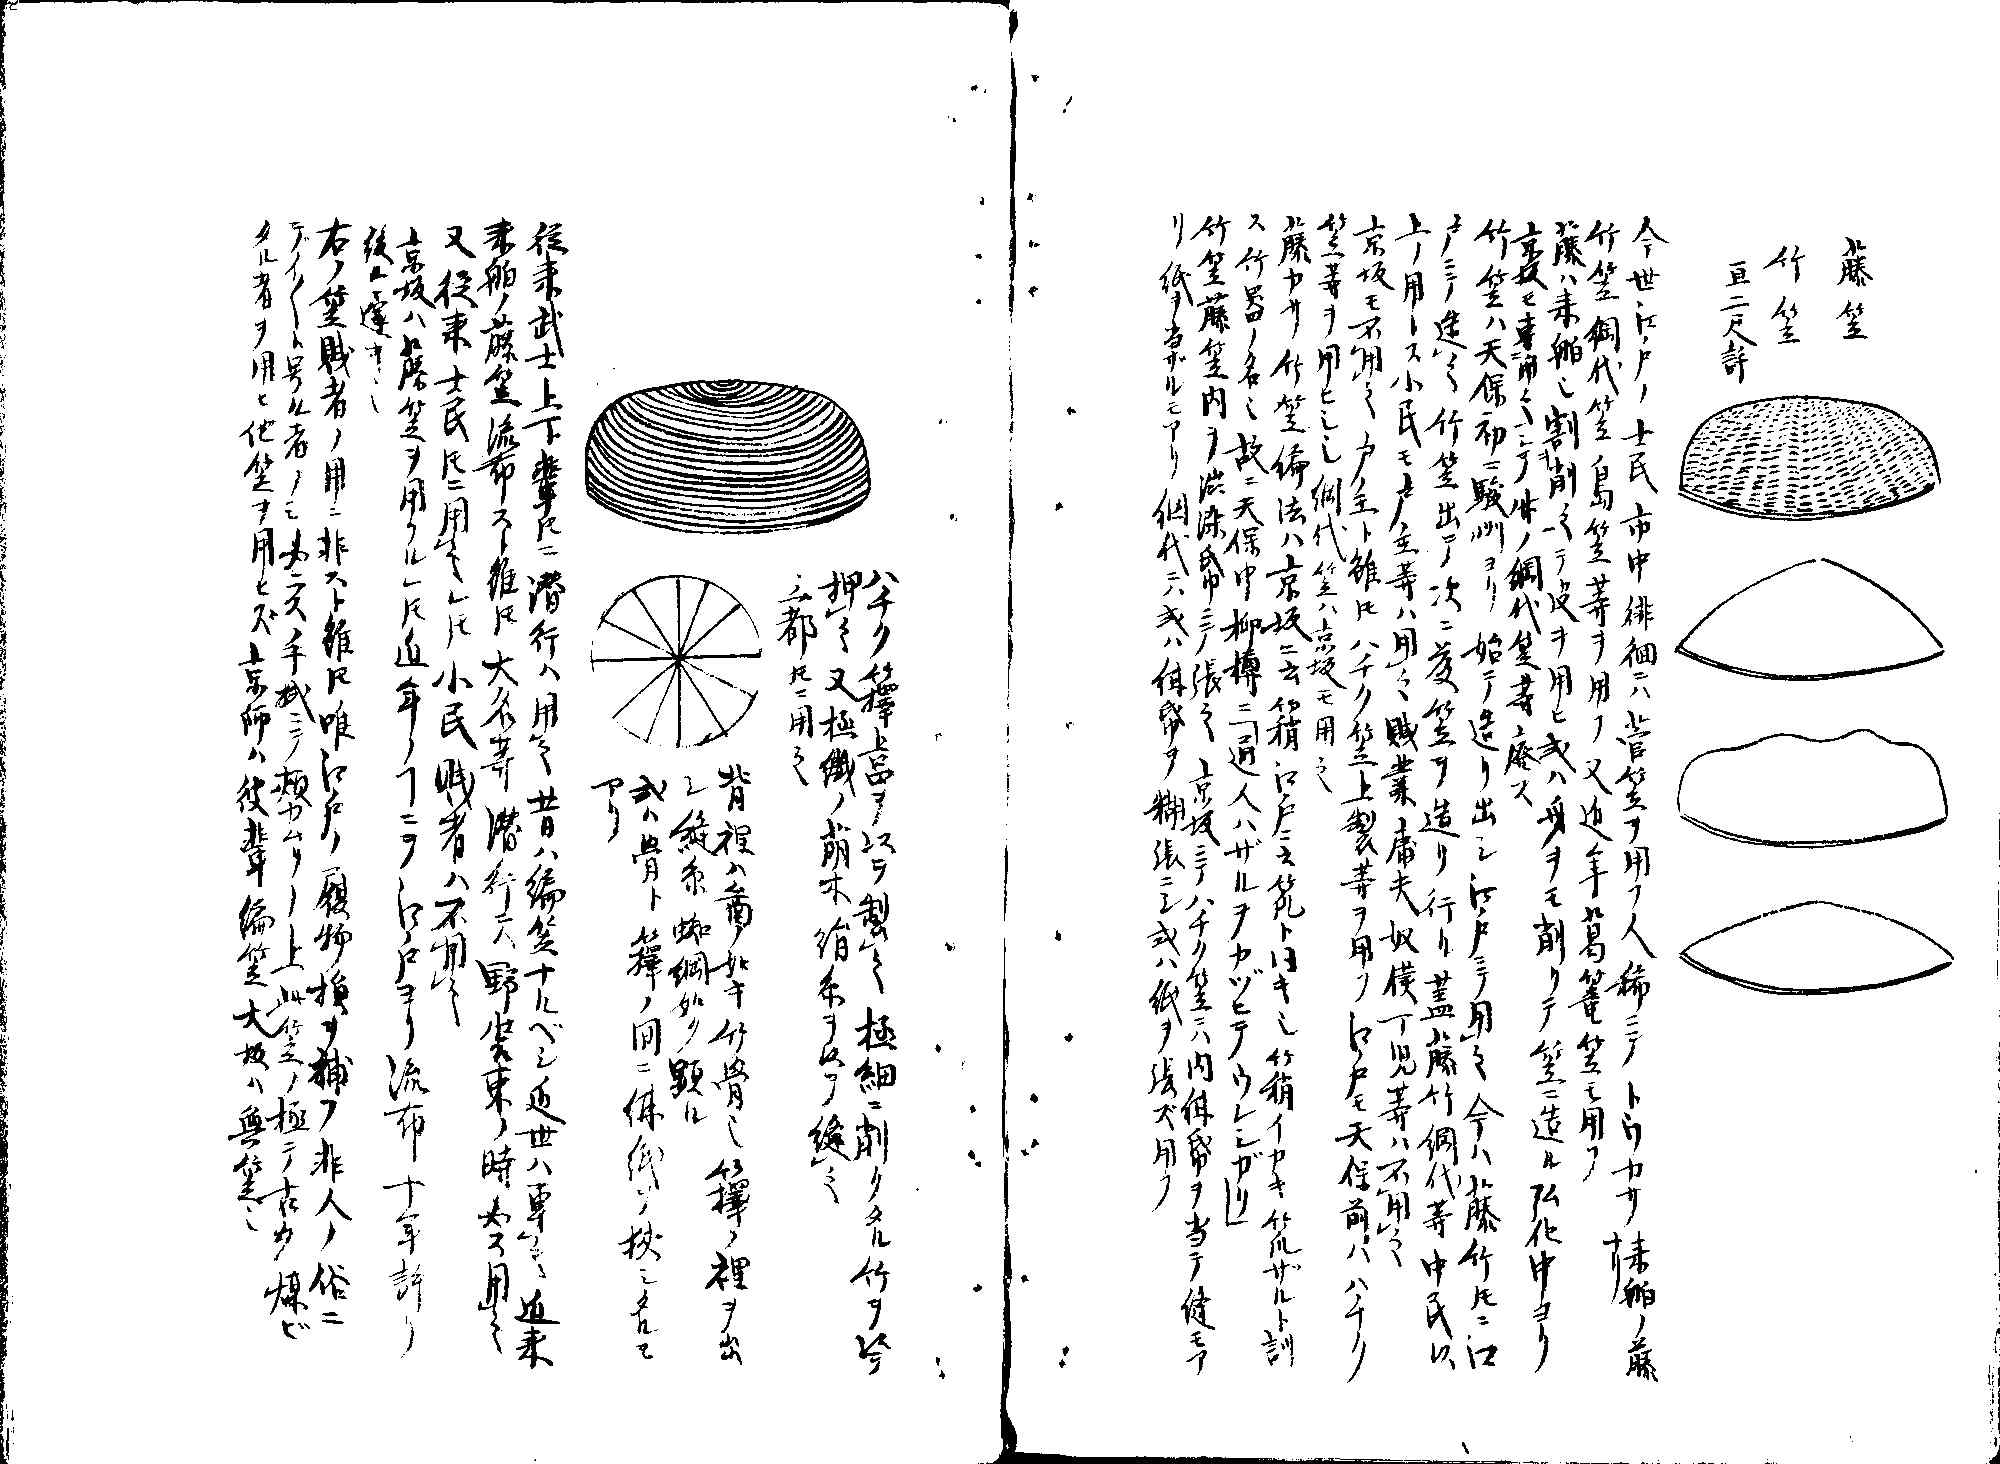 藤笠
竹笠
亘二尺許
今世江戸ノ士民市中徘徊ニハ菅笠ヲ用フ人稀ニテトウカサ来舶ノ藤
ナリ
竹笠網代笠島笠等ヲ用フ又近年葛籠笠モ用フ
藤ハ来舶也割削之テ皮ヲ用ヒ或ハ身ヲモ削リテ笠ニ造ル弘化中ヨリ
京坂モ専用之シテ昨ノ網代笠等廃ス
竹笠ハ天保初ニ駿州ヨリ始テ造リ出シ江戸ニテ用之今ハ藤竹トモニ江
戸ニテ造之竹笠出テ次ニ菱笠ヲ造リ行リ蓋藤竹網代等中民以
上ノ用トス小民モ戸主等ハ用之賎業庸夫奴僕丁児等ハ不用之
京坂モ不用之戸主ト雖トモハチク笠上製等ヲ用フ江戸モ天保前ハハチク
笠等ヲ用ヒシ也網代笠ハ京坂モ用之
藤カサ竹笠編法ハ京坂ニ云䈰江戸ニ云笊ト同キ也竹䈰イカキ笊ザルト訓
ス竹器ノ名也故ニ天保中柳樽ニ「通人ハザルヲカツヒテウレシガリ」
竹笠藤笠内ヲ渋染紙巾ニテ張之京坂ニテハチク笠ニハ内俵帋ヲ当テ縫モア
リ紙ヲ当ザルモアリ網代ニハ或ハ俵帋ヲ糊張ニシ或ハ紙ヲ張ズ用フ
ハチク籜上品ヲ以テ製之極細ニ削リタル竹ヲ以テ
押之又極繊ノ萌木絹糸ヲ以テ縫之
三都トモニ用之
背裡ハ図ノ如キ竹骨也籜ノ裡ヲ出
シ縫糸蜘網如ク顕ル
或ハ骨ト籜ノ間ニ俵紙ヲ挟ミタルモ
アリ
従来武士上下輩トモニ潜行ハ用之昔ハ編笠ナルベシ近世ハ専用之近来
来舶ノ藤笠流布スト雖トモ大名等潜行ニハ野装束ノ時必ス用之
又従来士民トモニ用之レトモ小民賎者ハ不用之
京坂ハ藤笠ヲ用フルレトモ近年ノコニテ江戸ヨリ流布十年許リ
後ル遅キ也
右ノ笠賎者ノ用ニ非スト雖トモ唯江戸ノ履物損ヲ補フ非人ノ俗ニ
デイ〳〵ト号ル者ノミ必ス手拭ニテ頬カムリノ上此笠ノ極テ古ク煤ビ
タル者ヲ用ヒ他笠ヲ用ヒズ京師ハ彼輩編笠大坂ハ無笠也